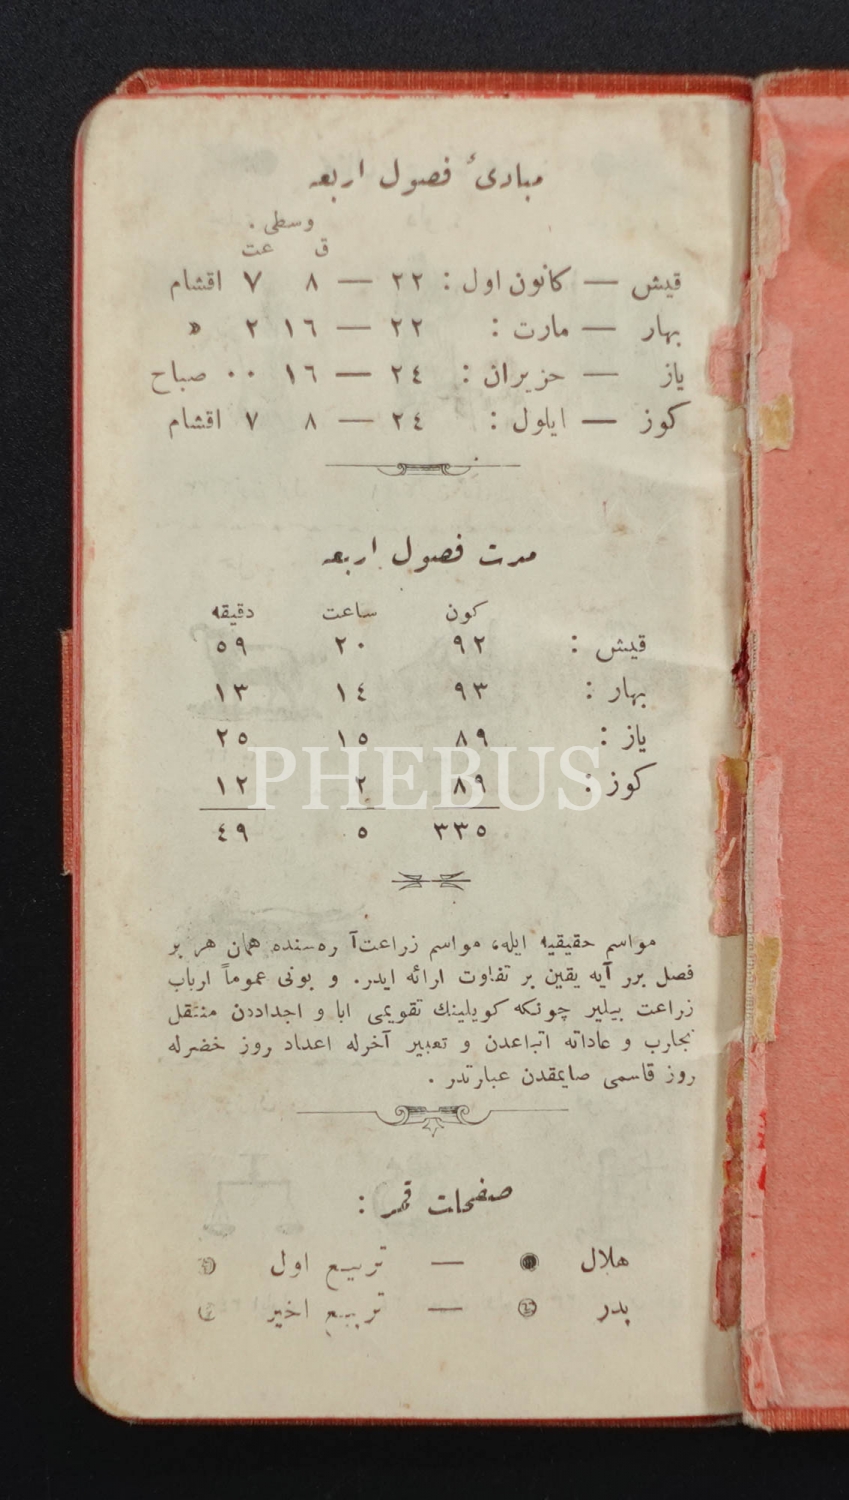 مبادئ فصول اربعه
وسطی .
ق عت
قیش — كانون اول : ٢٢ — ٨ ٧ اقشام
بهار — مارت : ٢٢ — ١٦ ٢ »
یاز — حزیران : ٢٤ — ١٦ ٠٠ صباح
كوز — ایلول : ٢٤ — ٨ ٧ اقشام
مدت فصول اربعه
كون ساعت دقیقه
قیش : ٩٢ ٢٠ ٥٩
بهار : ٩٣ ١٤ ١٣
یاز : ٨٩ ١٥ ٢٥
كوز : ٨٩ ٢ ١٢
٣٣٥ ٥ ٤٩
PHEBUS
مواسم حقیقیه ایله، مواسم زراعت آره‌سنده همان هر بر
فصل برر آیه یقین بر تفاوت ارائه ایدر. و بونی عموماً ارباب
زراعت بیلیر چونكه كویلینك تقویمی ابا و اجداددن منتقل
تجارب و عاداته اتباعدن و تعبیر آخرله اعداد روز خضرله
روز قاسمی صایمقدن عبارتدر .
صفحات قمر :
هلال — تربیع اول
بدر — تربیع اخیر